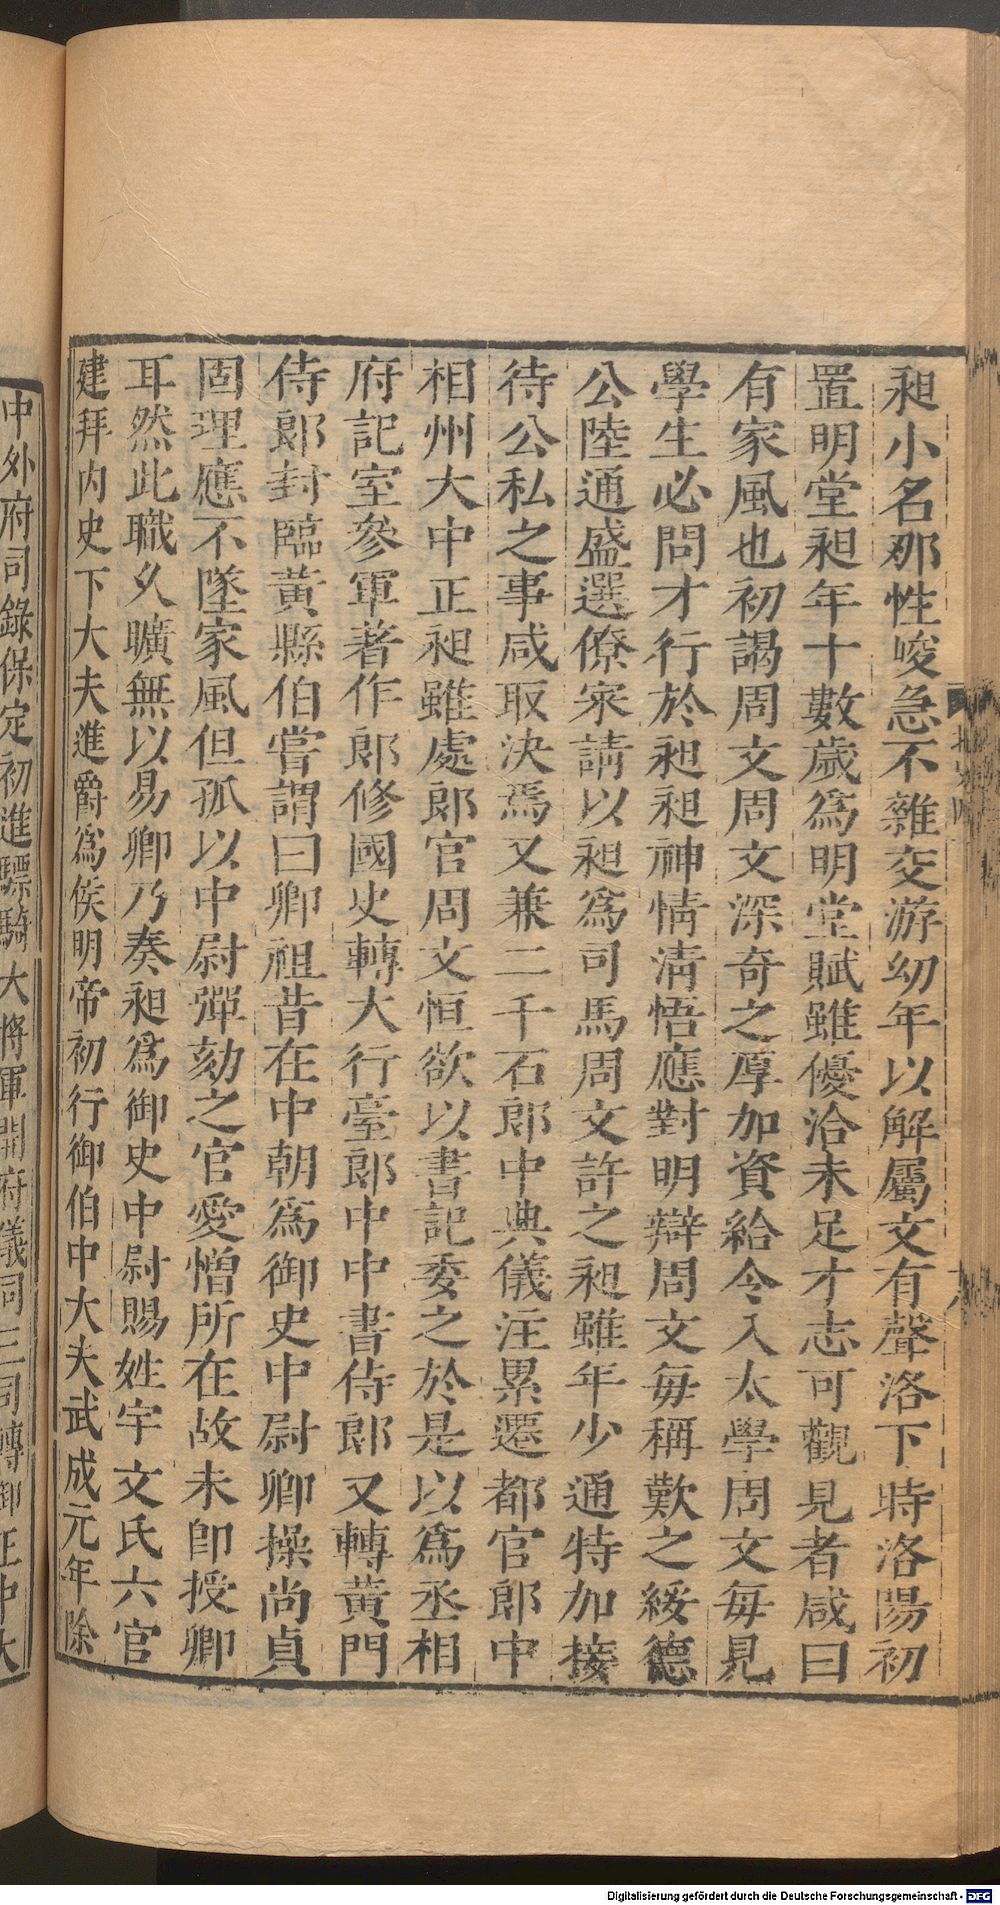 昶小名那性峻急不雜交游幼年以解屬文有聲洛下時洛陽初
置明堂昶年十數歲爲明堂賦雖優洽未足才志可觀見者咸曰
有家風也初謁周文周文深奇之厚加資給令入太學周文每見
學生必問才行於昶昶神情清悟應對明辯周文每稱歎之綏德
公陸通盛選僚寀請以昶爲司馬周文許之昶雖年少通特加接
待公私之事咸取決焉又兼二千石郎中典儀注累遷都官郎中
相州大中正昶雖處郎官周文恒欲以書記委之於是以爲丞相
府記室參軍著作郎修國史轉大行臺郎中中書侍郎又轉黃門
侍郎封臨黃縣伯嘗謂曰卿祖昔在中朝爲御史中尉卿操尚貞
固理應不墜家風但孤以中尉彈劾之官愛憎所在故未卽授卿
耳然此職久曠無以易卿乃奏昶爲御史中尉賜姓宇文氏六官
建拜內史下大夫進爵爲侯明帝初行御伯中大夫武成元年除
中外府司錄保定初進驃騎大將軍開府儀同三司轉御正中大
Digitalisierung gefördert durch die Deutsche Forschungsgemeinschaft - DFG